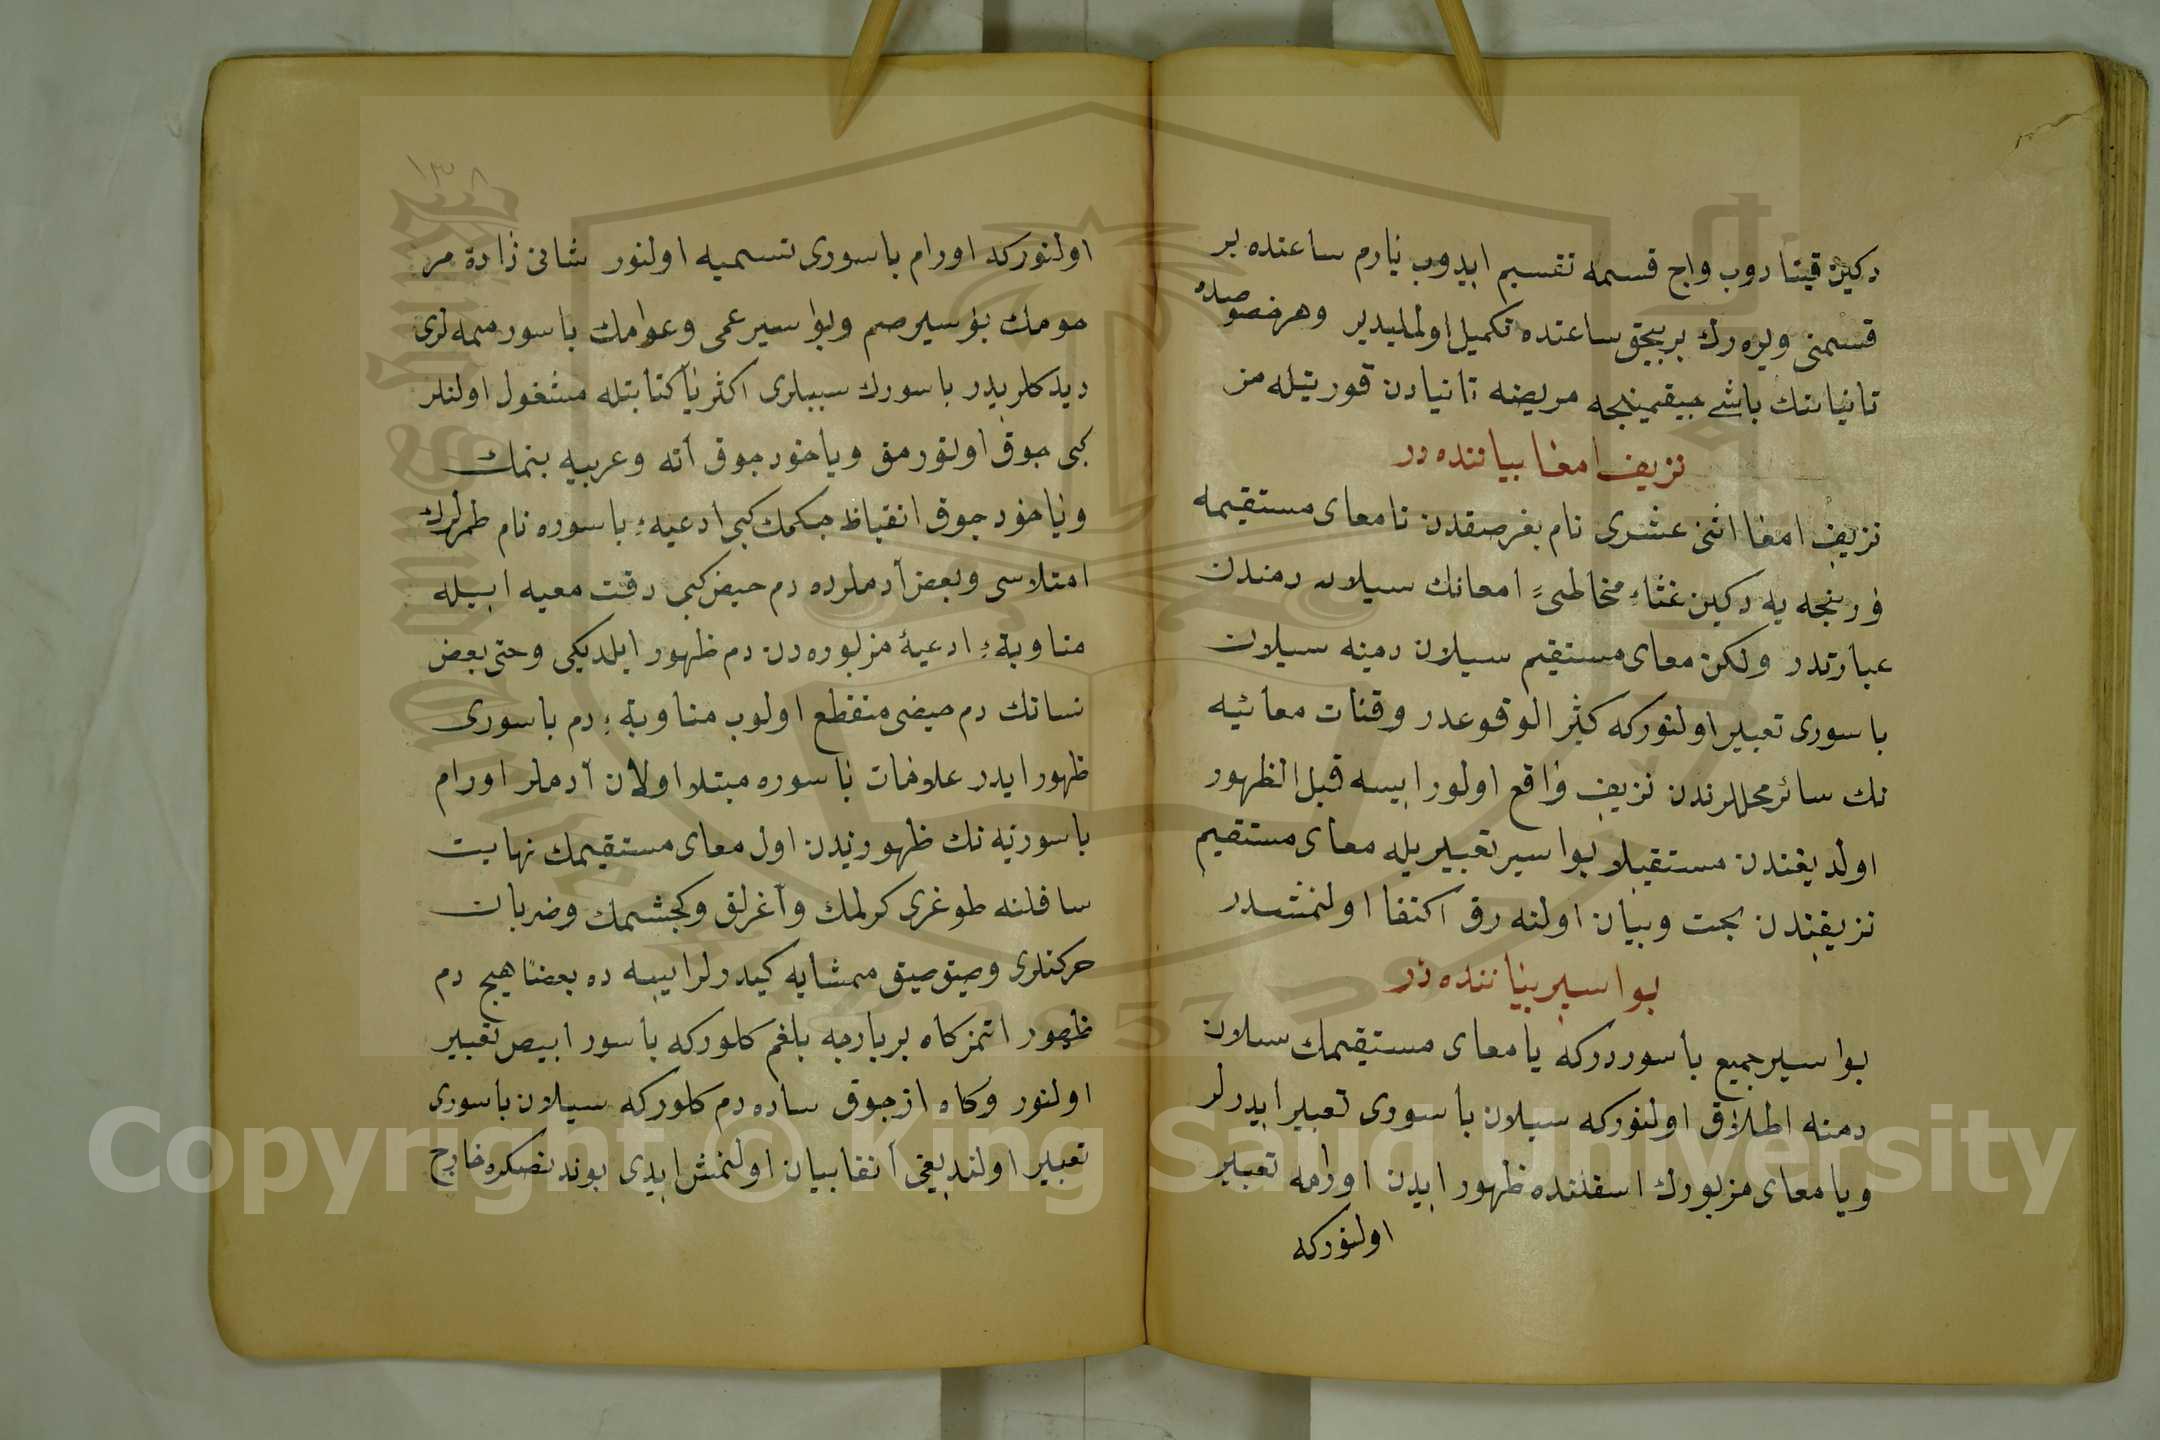 دكين قيناروب واج قسمه تقسيم ايدوب يارم ساعتده بر
قسمنى ويره رك بربچق ساعتده تكميل اولمليدير وهر خصوصده
تانيانك باشى چيقمينجه مريضه تانيادن قورتيله مز
نزيف امعا بياننده در
نزيف امعا اثنى عشرى نام بغرصقدن تا معاى مستقيمه
ورنجه يه دكين غشاء مخاطىء امعانك سيلان دمندن
عبارتدر ولكن معاى مستقيم سيلان دمينه سيلان
باسورى تعبير اولنوركه كثير الوقوعدر وقنات معائيه
نك سائر محللرندن نزيف واقع اولور ايسه قبل الظهور
اولديغندن مستقيلا بواسير تعبيريله معاى مستقيم
نزيفندن بحث وبيان اولنه رق اكتفا اولنمشدر
بواسير بياننده در
بواسير جميع باسوردركه يا معاى مستقيمك سيلان
دمنه اطلاق اولنوركه سيلان باسورى تعبير ايدرلر
ويا معاى مزبورك اسفلنده ظهور ايدن اورامه تعبير
اولنوركه
١٣٨
اولنوركه اورام باسورى تسميه اولنور شانى زاده مر
حومك بواسير صم وبواسير عمى وعوامك باسور ممه لرى
ديدكلريدر باسورك سببلرى اكثريا كتابتله مشغول اولنلر
كبى چوق اوتورمق وياخود چوق آته وعربيه بنمك
وياخود چوق انقباظ چكمك كبى ادعيهء باسوره نام طمرلرك
امتلاسى وبعض آدملرده دم حيض كبى دقت معيه ايله
مناوبةء ادعيهٔ مزبوره دن دم ظهور ايلديكى وحتى بعض
نسانك دم حيضى منقطع اولوب مناوبةء دم باسورى
ظهور ايدر علامات باسوره مبتلا اولان آدملر اورام
باسوريه نك ظهورندن اول معاى مستقيمك نهايت
سافلنه طوغرى كرلمك وآغرلق وكجشمك وضربان
حركتلرى وصيق صيق ممشايه كيدرلر ايسه ده بعضا هيچ دم
ظهور اتمز كاه بر پارچه بلغم كلوركه باسور ابيض تعبير
اولنور وكاه از چوق ساده دم كلوركه سيلان باسورى
تعبير اولنديغى آنفا بيان اولنمش ايدى بوندنصكره خارج
Copyright © King Saud University
1957